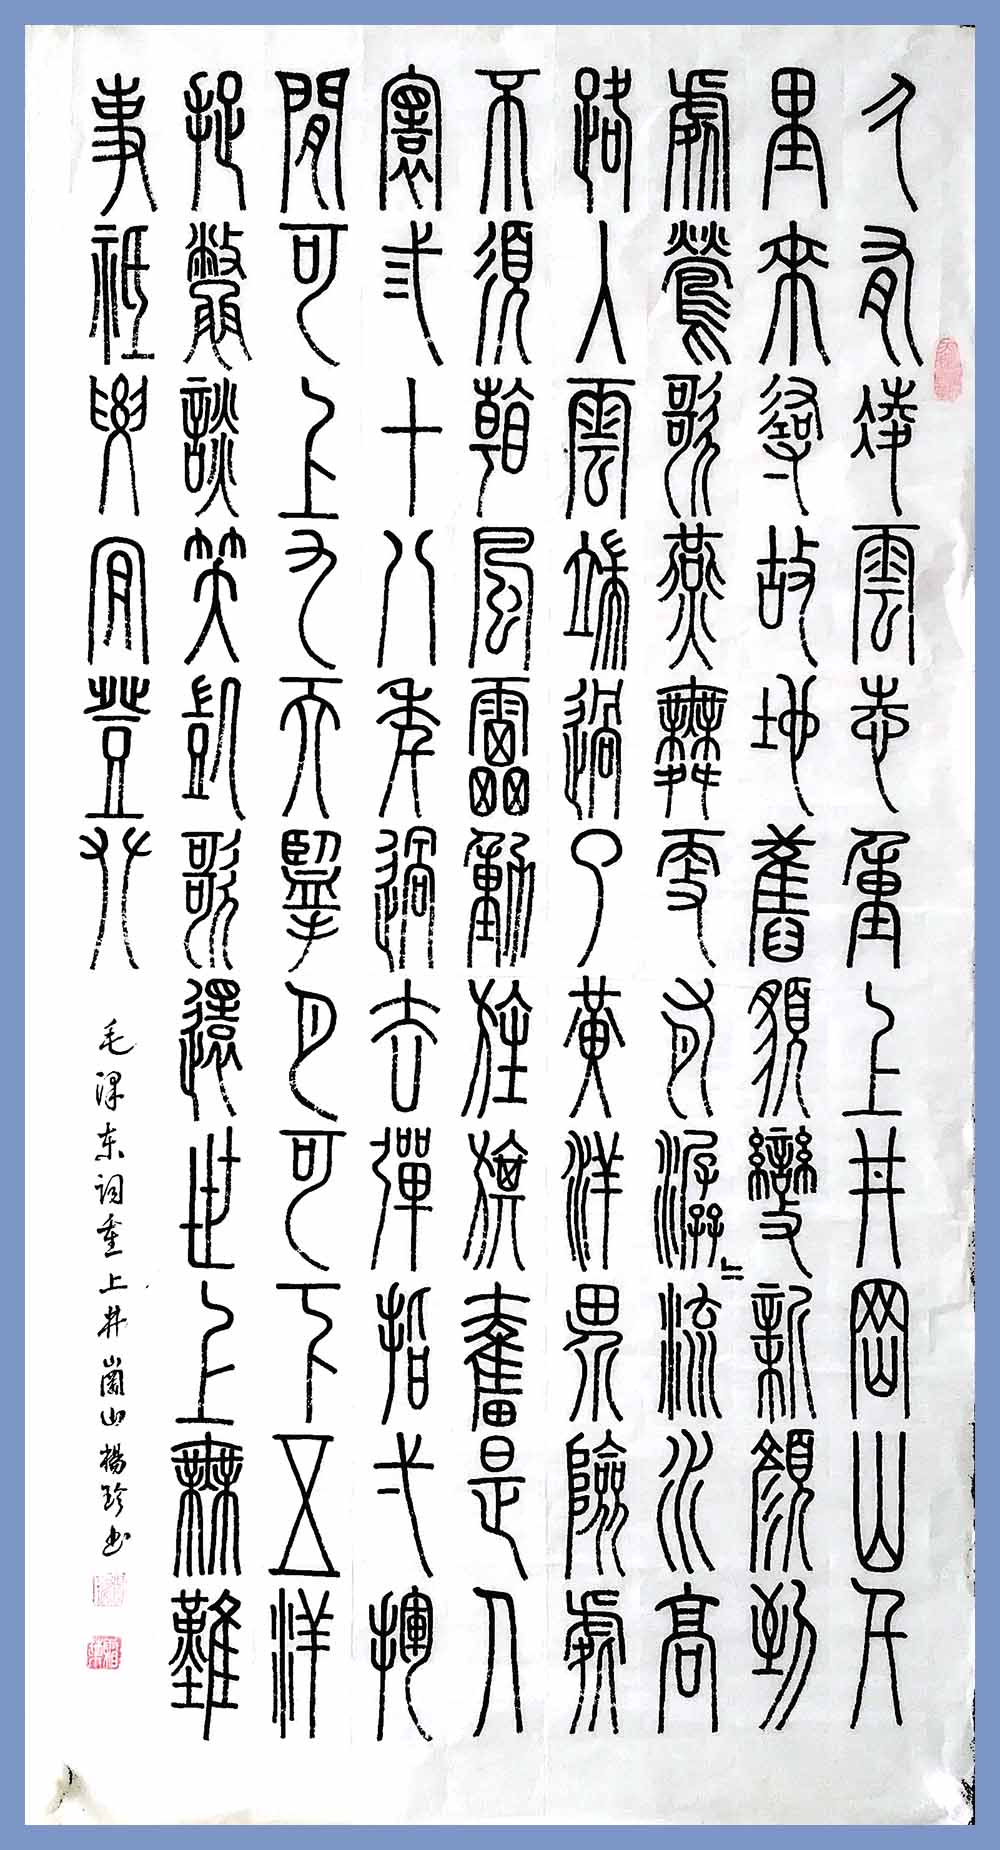 久有凌雲志重上井岡山千
里來尋故地舊貌變新顏到
處鶯歌燕舞更有潺〻流水高
路入雲端過了黃洋界險處
不須看風雷動旌旗奮是人
寰弎十八年過去彈指弌揮
閒可上九天擥月可下五洋
捉鱉談笑凱歌還世上無難
事祗要肯登攀
毛泽东词重上井崗山楊珍书